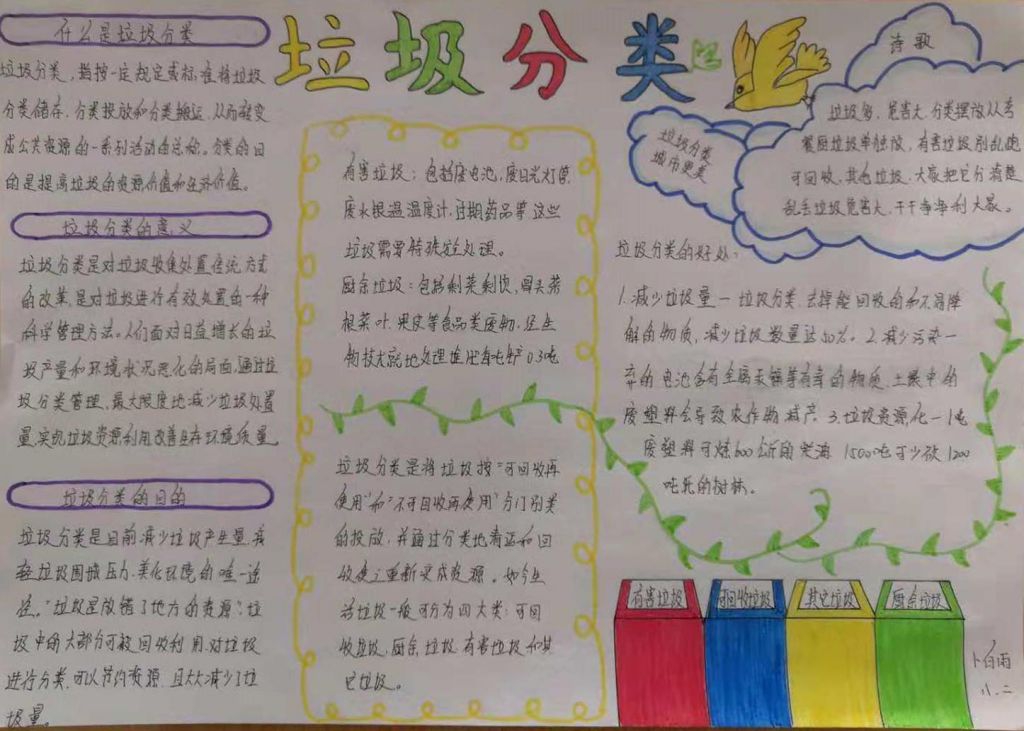 垃圾分类
什么是垃圾分类
垃圾分类，指按一定规定或标准将垃圾
分类储存，分类投放和分类搬运，从而转变
成公共资源的一系列活动的总称。分类的目
的是提高垃圾的资源价值和经济价值。
垃圾分类的意义
垃圾分类是对垃圾收集处置传统方式
的改革，是对垃圾进行有效处置的一种
科学管理方法。人们面对日益增长的垃
圾产量和环境状况恶化的局面，通过垃
圾分类管理，最大限度地减少垃圾处置
量，实现垃圾资源利用改善生存环境质量
垃圾分类的目的
垃圾分类是目前减少垃圾产生量，减
轻垃圾围城压力，美化环境的唯一途
径。"垃圾是放错了地方的资源"，垃
圾中的大部分可被回收利用，对垃圾
进行分类，可以节约资源，且大大减少了垃
圾量。
有害垃圾：包括废电池，废日光灯管，
废水银温温度计，过期药品等这些
垃圾需要特殊安全处理。
厨余垃圾：包括剩菜剩饭，骨头菜
根菜叶，果皮等食品类废物，经生
物技术就地处理堆肥每吨产0.3吨
垃圾分类是将垃圾按"可回收再
使用"和"不可回收再使用"分门别类
的投放，并通过分类地清运和回
收使之重新变成资源。如今生
活垃圾一般可分为四大类：可回
收垃圾，厨余垃圾，有害垃圾和其
它垃圾。
诗歌
垃圾多，危害大，分类摆放从
餐厨垃圾单独放，有害垃圾别乱跑
可回收，其他垃圾，大家把它分清楚
乱丢垃圾危害大，干干净净利大家。
垃圾分类
城市更美
垃圾分类的好处：
1.减少垃圾量一垃圾分类，去掉能回收的和不易降
解的物质，减少垃圾数量达50%。2.减少污染一
弃的电池含有金属汞镉等有毒的物质，土壤中的
废塑料会导致农作物减产。3.垃圾资源化一1吨
废塑料可炼600公斤的柴油 1500吨可少砍1200
吨纸的树林。
有害垃圾
可回收垃圾
其它垃圾
厨余垃圾
卜白雨
八.二